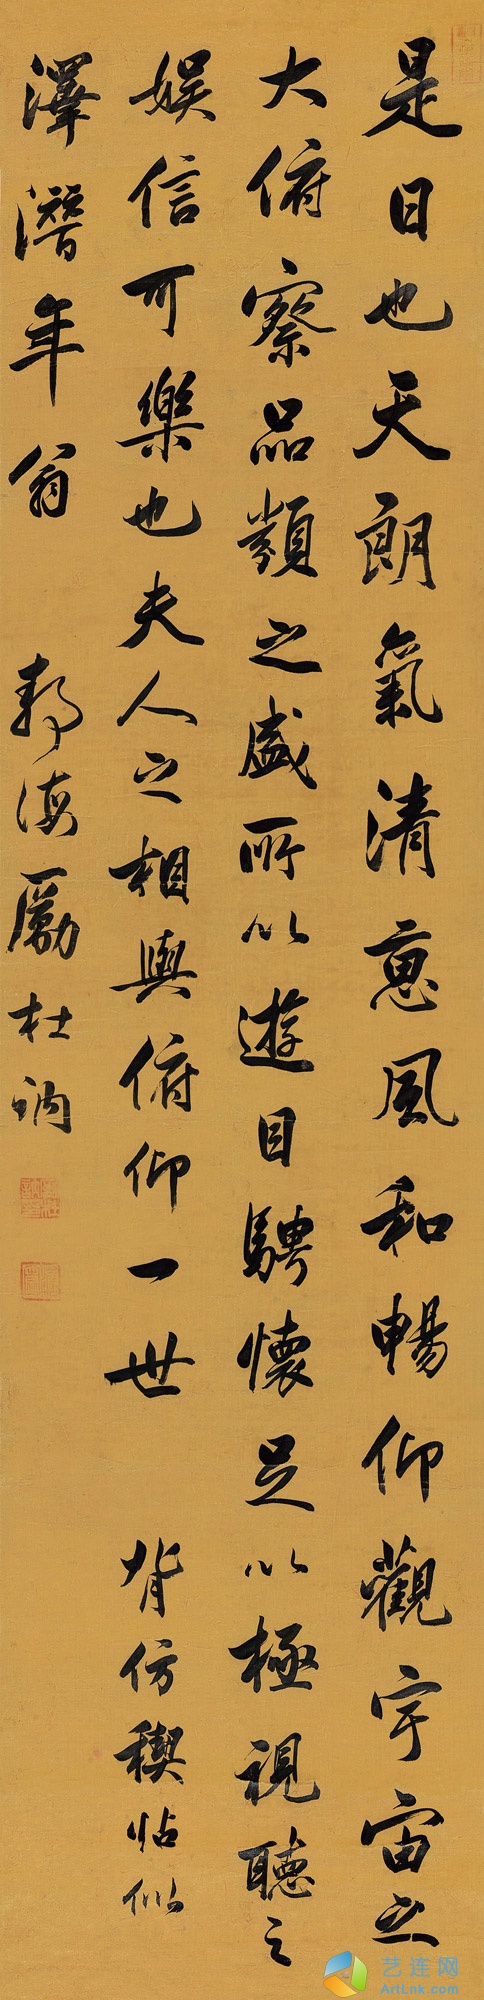 是日也天朗氣清惠風和暢仰觀宇宙之
大俯察品類之盛所以遊目騁懷足以極視聽之
娱信可樂也夫人之相與俯仰一世 背仿稧帖似
澤潛年翁 静海勵杜訥
艺连网
ArtLnk.com